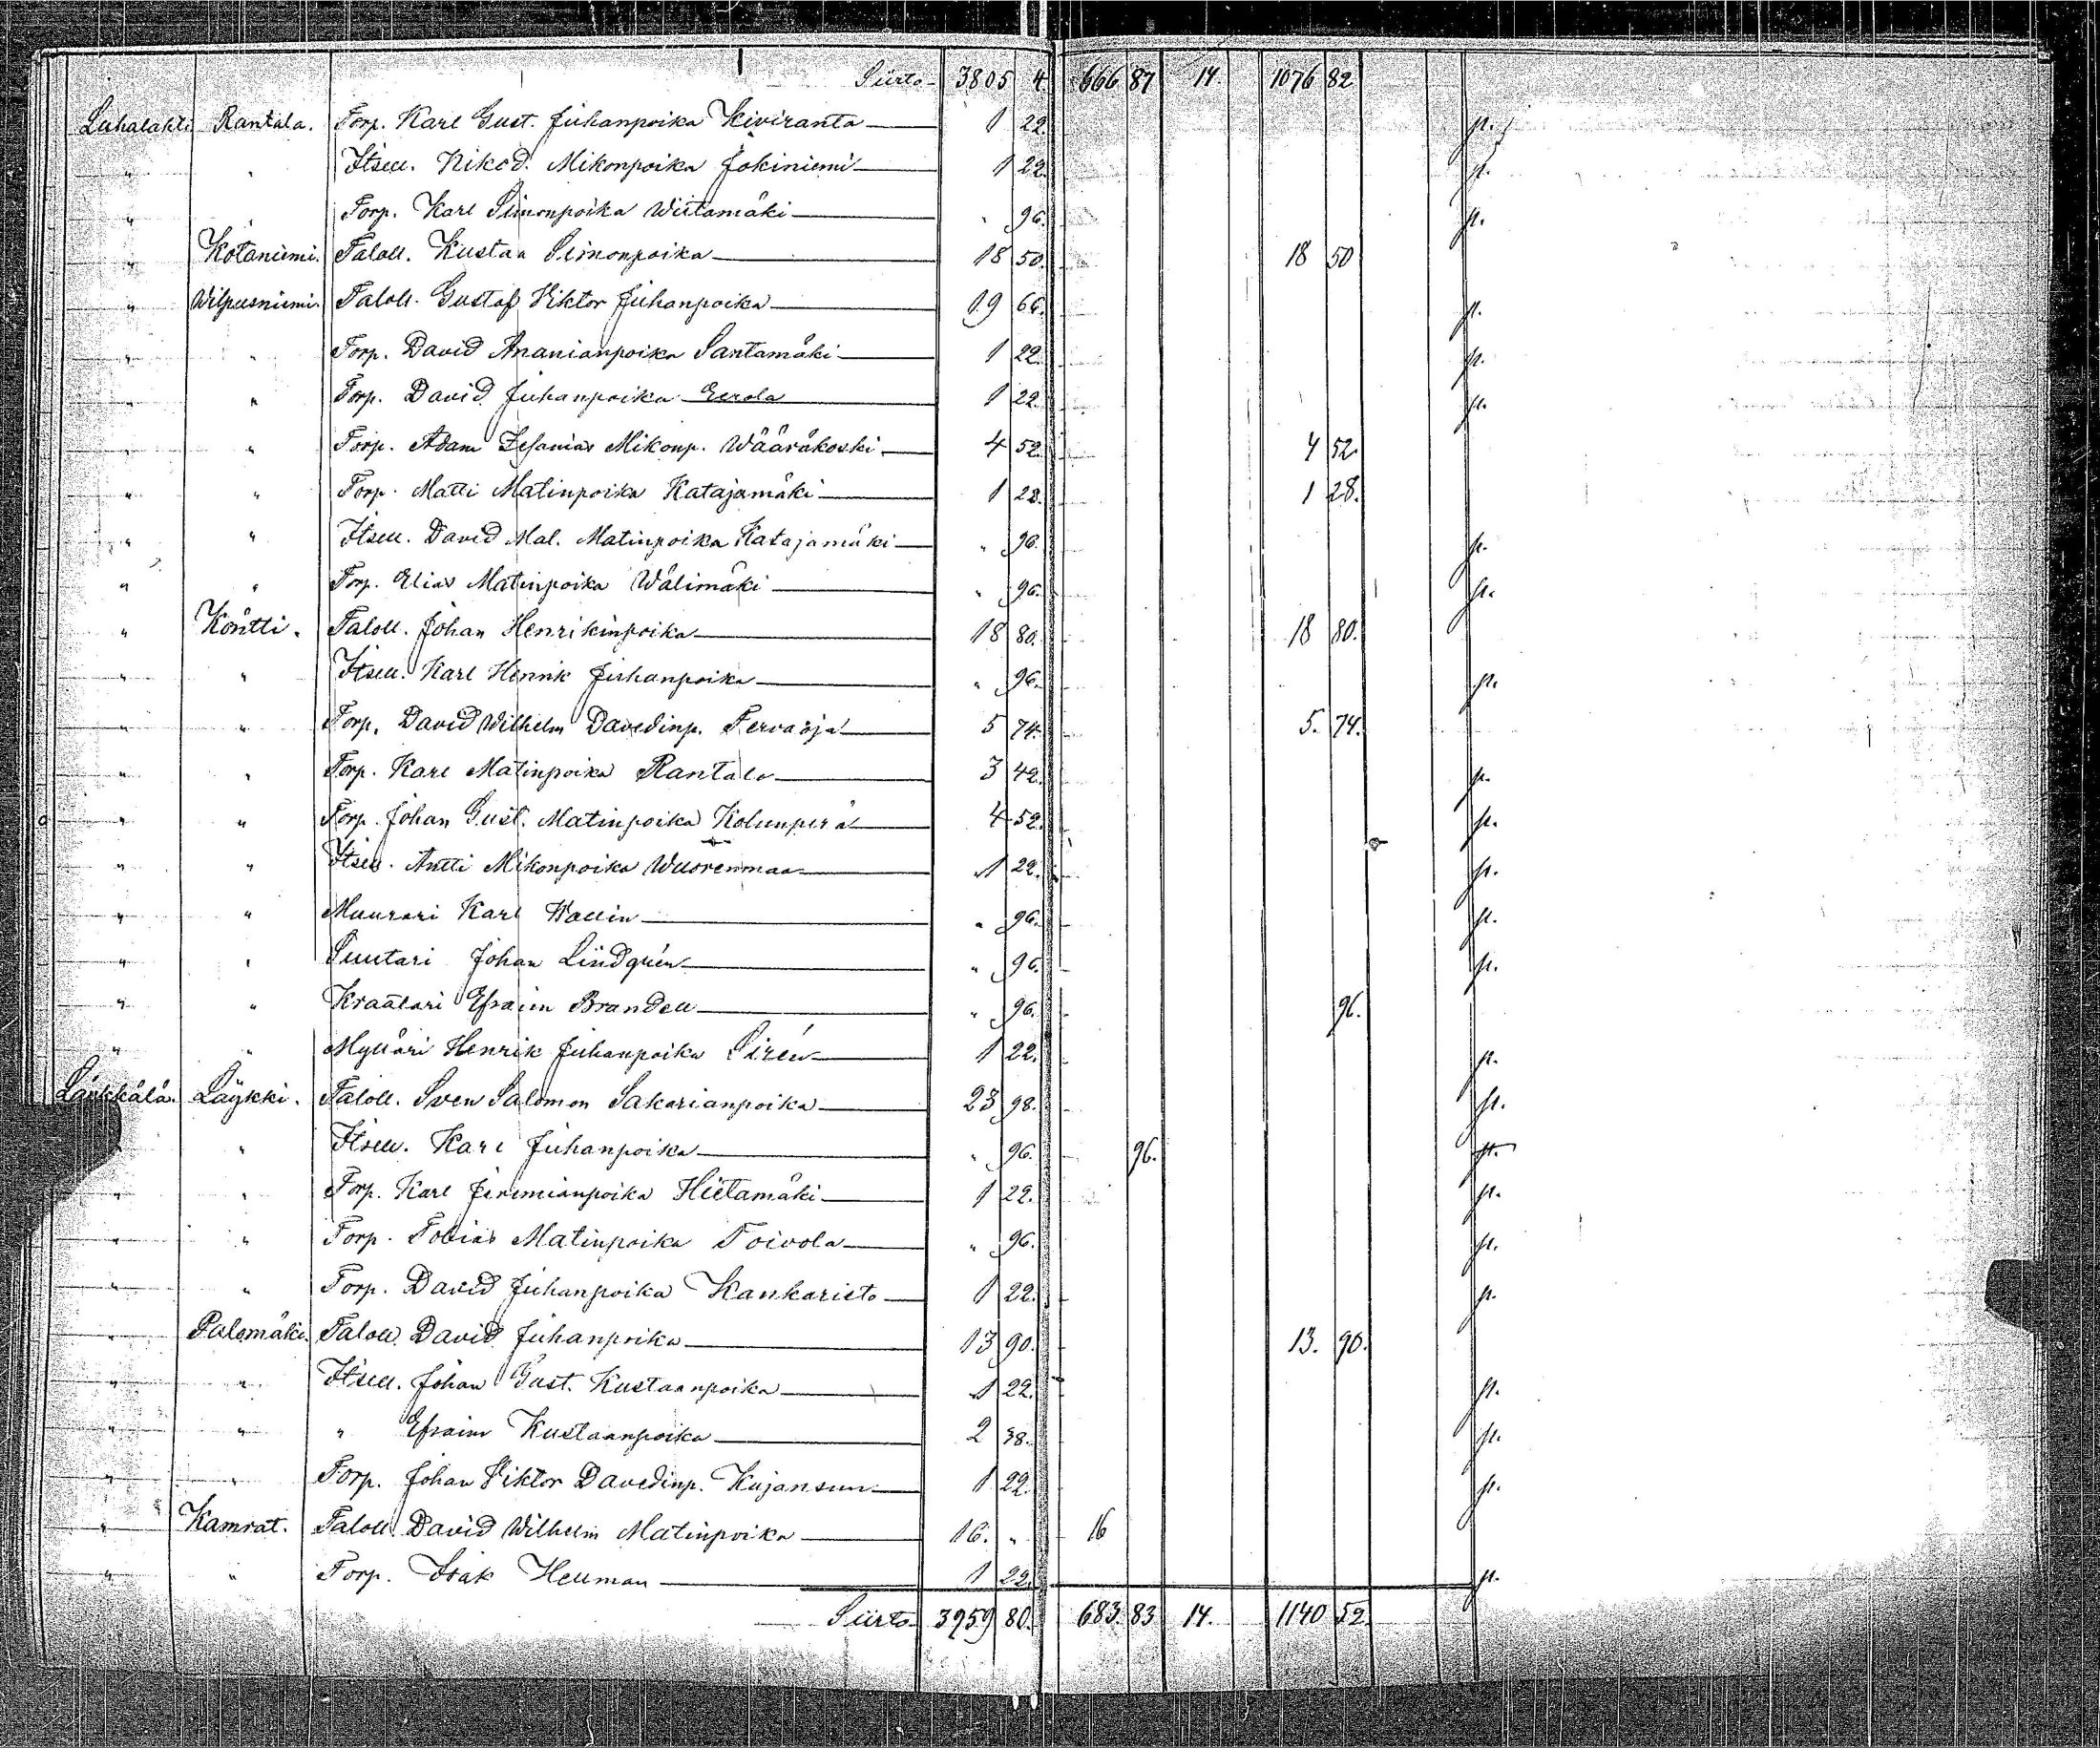 Siirto 3805 4. 666 87 14. 1076 82
Luhalahti Rantala. Torp. Karl Gust. Juhanpoika Kiviranta 1 22.
" " Itsell. Nikod. Mikonpoika Jokiniemi 1 22.
" " Torp. Karl Simonpoika Wiitamäki " 96.
" Kotaniemi. Taloll. Kustaa Simonpoika 18 50. 18 50
" Wilpusniemi. Taloll. Gustaf Viktor Juhanpoika 19 66.
" " Torp. David Ananianpoika Santamäki 1 22.
" " Torp. David Juhanpoika Eerola 1 22.
" " Torp. Adam Zefanias Mikonp. Wääräkoski 4 52. 4 52.
" " Torp. Matti Matinpoika Katajamäki 1 28. 1 28.
" " Itsell. David Mal. Matinpoika Katajamäki " 96.
" " Torp. Elias Matinpoika Wälimäki " 96.
" Köntti. Taloll. Johan Henrikinpoika 18 80. 18 80.
" " Itsell. Karl Henrik Juhanpoika " 96.
" " Torp. David Wilhelm Davedinp. Tervaoja 5 74. 5. 74.
" " Torp. Karl Matinpoika Rantala 3 42.
" " Torp. Johan Gust. Matinpoika Kolunperä 4 52.
" " Itsell. Antti Mikonpoika Wuorenmaa 1 22.
" " Muurari Karl Wallin " 96.
" " Suutari Johan Lindqrén " 96.
" " Kraatari Efraim Brandell " 96. 96.
" " Mylläri Henrik Juhanpoika Sirén 1 22.
Länkkälä. Läykki. Taloll. Sven Salomon Sakarianpoika 23 98.
" Itsell. Karl Juhanpoika " 96. 96.
" " Torp. Karl Jeremianpoika Hietamäki 1 22.
" " Torp. Tobias Matinpoika Toivola " 96.
" " Torp. David Juhanpoika Kankaristo 1 22.
" Palomäki. Taloll. David Juhanpoika 13 90. 13. 90.
" " Itsell. Johan Gust. Kustaanpoika 1 22.
" " " Efraim Kustaanpoika 2 38.
" " Torp. Johan Viktor Davedinp. Kujansuu 1 22.
" Kamrat. Taloll. David Wilhelm Matinpoika 16. " 16
" " Torp. Isak Hellman 1 22.
Siirto 3959 80. 683. 83 14. 1140 52.